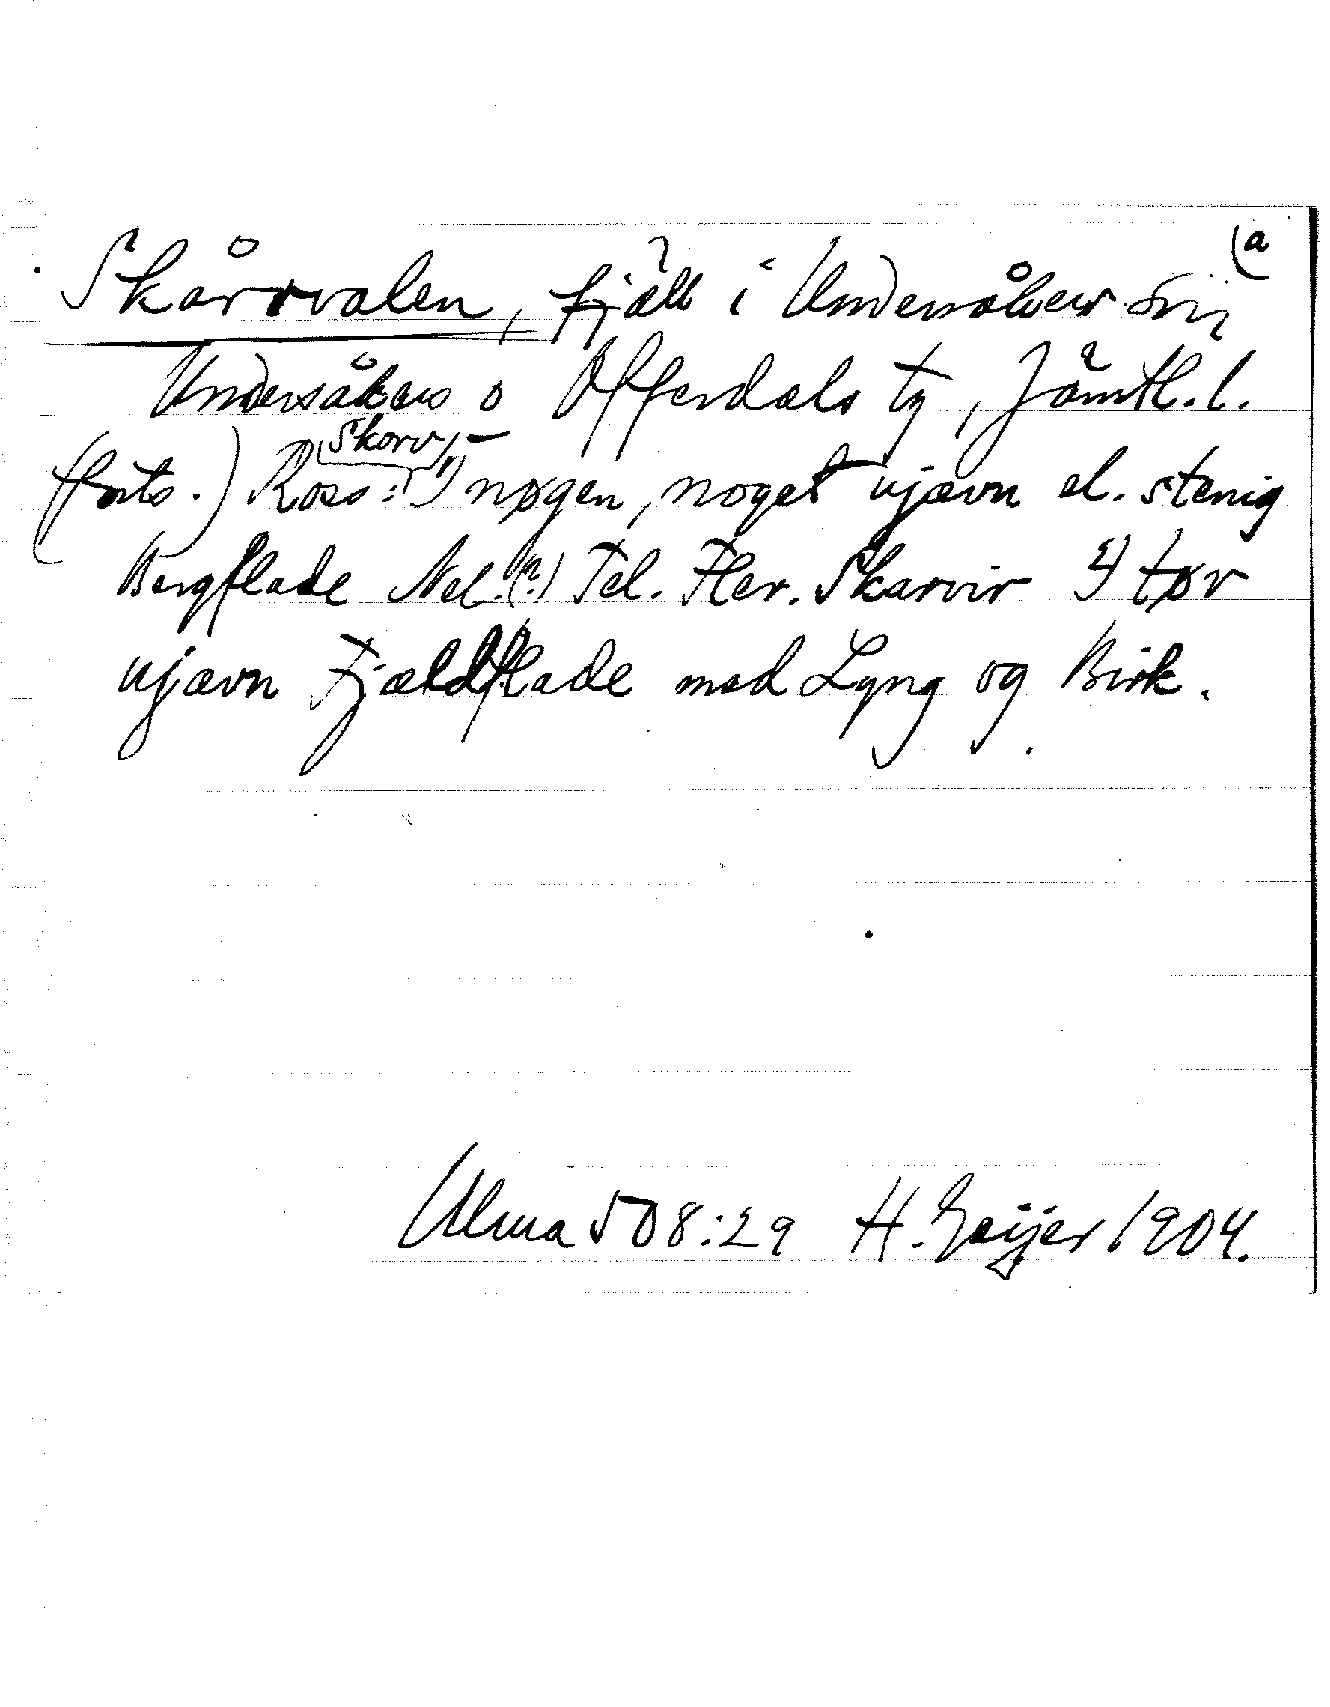 (a
Skårvvalen, fjäll i Undersåkers sn i
Undersåkers o Offerdals tg, Jämtl. l.
(forts.) Ross: Skorv, – 1) nøgen, noget ujævn el. stenig
Bergflade Nel.(?) Tel. Fler. Skarvir 2) tør
ujævn Fjældflade med Lyng og Birk.
Ulma 508:29 H. Geijer 1904.